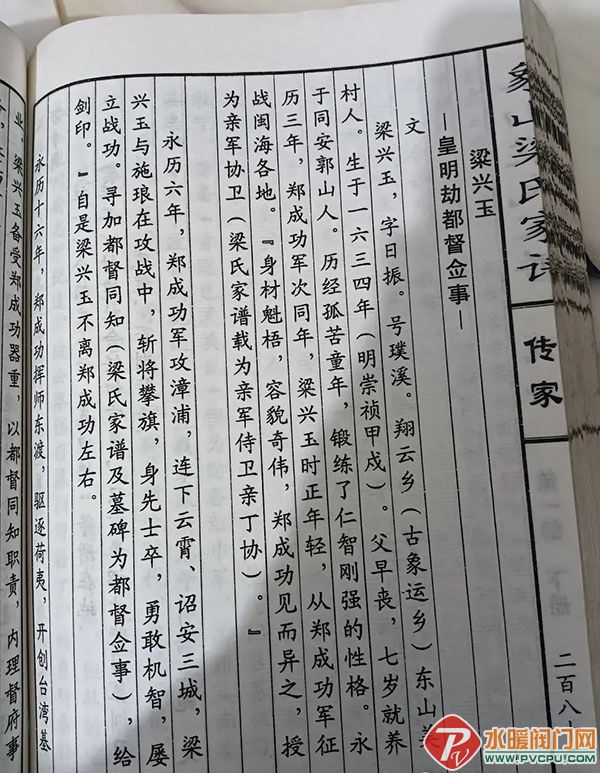 象山梁氏家谱
传家
二百八十
梁兴玉
—皇明劫都督佥事—
文
梁兴玉，字日振。号璞溪。翔云乡（古象运乡）东山美
村人。生于一六三四年（明崇祯甲戍）。父早丧，七岁就养
于同安郭山人。历经孤苦童年，锻练了仁智刚强的性格。永
历三年，郑成功军次同年，梁兴玉时正年轻，从郑成功军征
战闽海各地。『身材魁梧，容貌奇伟，郑成功见而异之，授
为亲军协卫（梁氏家谱载为亲军侍卫亲丁协）。』
永历六年，郑成功军攻漳浦，连下云霄、诏安三城，梁
兴玉与施琅在攻战中，斩将攀旗，身先士卒，勇敢机智，屡
立战功。寻加都督同知（梁氏家谱及墓碑为都督佥事），给
剑印。』自是梁兴玉不离郑成功左右。
永历十六年，郑成功挥师东渡，驱逐荷夷，开创台湾基
业。梁兴玉备受郑成功器重，以都督同知职责，内理督府事
水暖阀门网
PV
WWW.PVCPU.COM